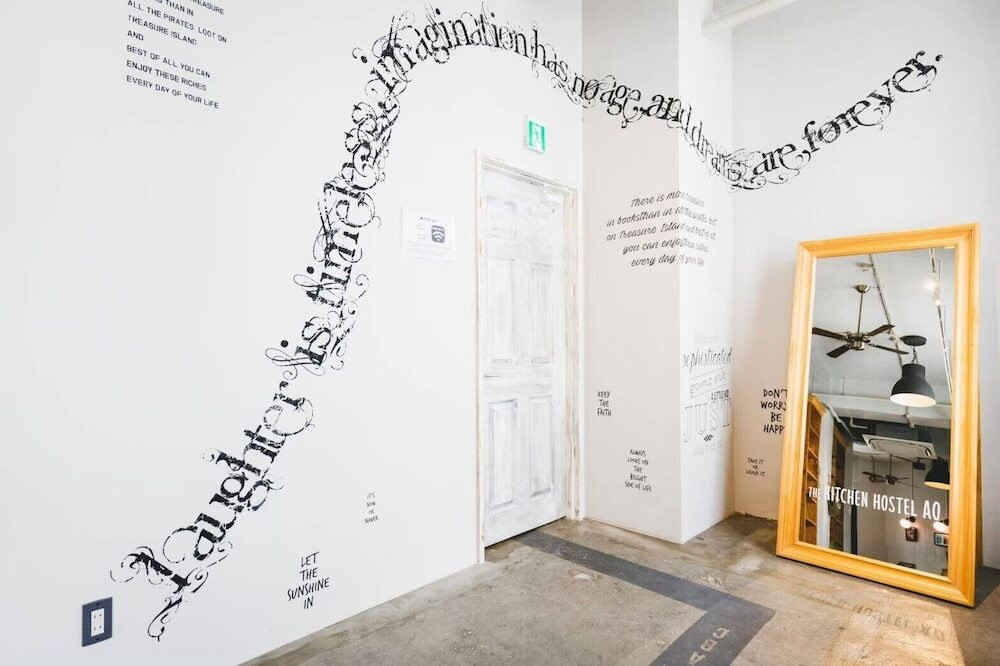 THAN IN
ALL THE PIRATES' LOOT ON
TREASURE ISLAND
AND
BEST OF ALL YOU CAN
ENJOY THESE RICHES
EVERY DAY OF YOUR LIFE
Laughter is timeless, imagination has no age, and dreams are forever.
There is more treasure
in booksthan in all the pirates' loot
on Treasure Island and best of all,
you can enjoy these riches
every day of your life.
sophisticated
JUST
KEEP
THE
FAITH
DON'T
WORRY
BE
HAPPY
ALWAYS
LOOKS ON
THE
BRIGHT
SIDE OF LIFE
TAKE IT
OR
LEAVE IT
IT'S
NOW
OR
NAVER
LET
THE
SUNSHINE
IN
THE KITCHEN HOSTEL AO